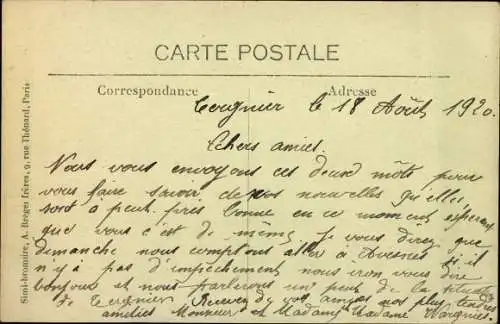 CARTE POSTALE
Correspondance
Adresse
Tergnier le 18 Août 1920.
Chers amies.
Nous vous envoyons ces deux môts pour
vous faire savoir de nos nouvelles qu'elles
sont à peut près bonne en ce moment, espérant
que vous c'est de même, Je vous direz que
dimanche nous comptont aller à Avesnes si il
n'y à pas d'impéchement nous iron vous dire
bonjour et nous parlerons un peut de la situation
de Tergnier, Recevez de vos amies nos plus tendres
amitiés Monsieur et Madame Wargnier
Simi-bromure, A. Breger frères, 9, rue Thénard, Paris